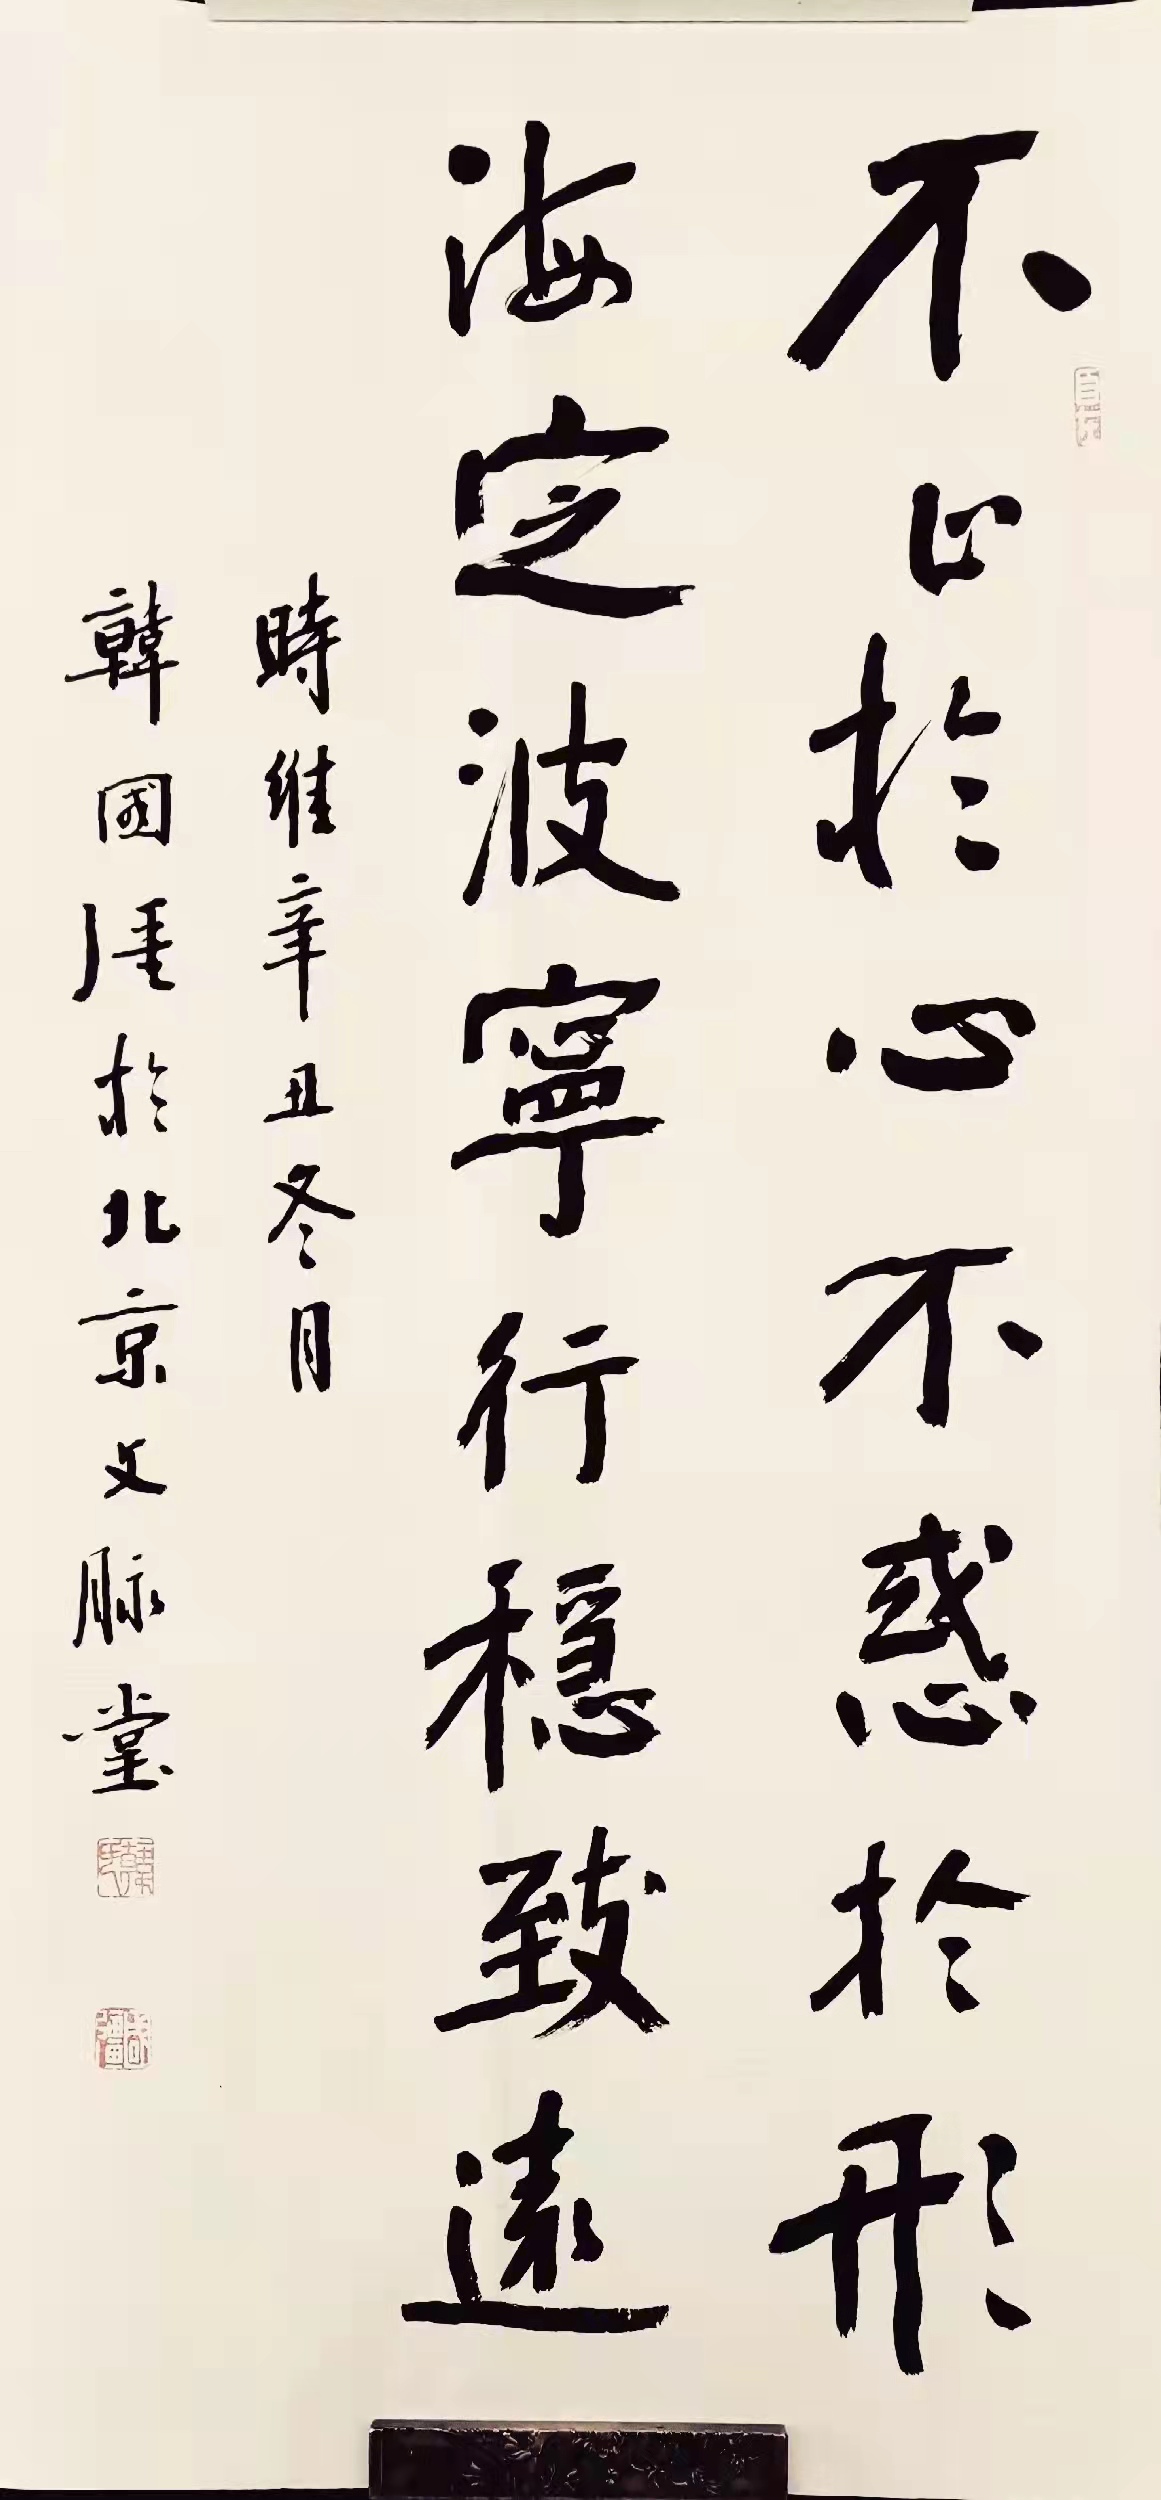 不止於心不惑於形
海定波寧行穩致遠
時維辛丑冬月
韓國於北京文脈堂